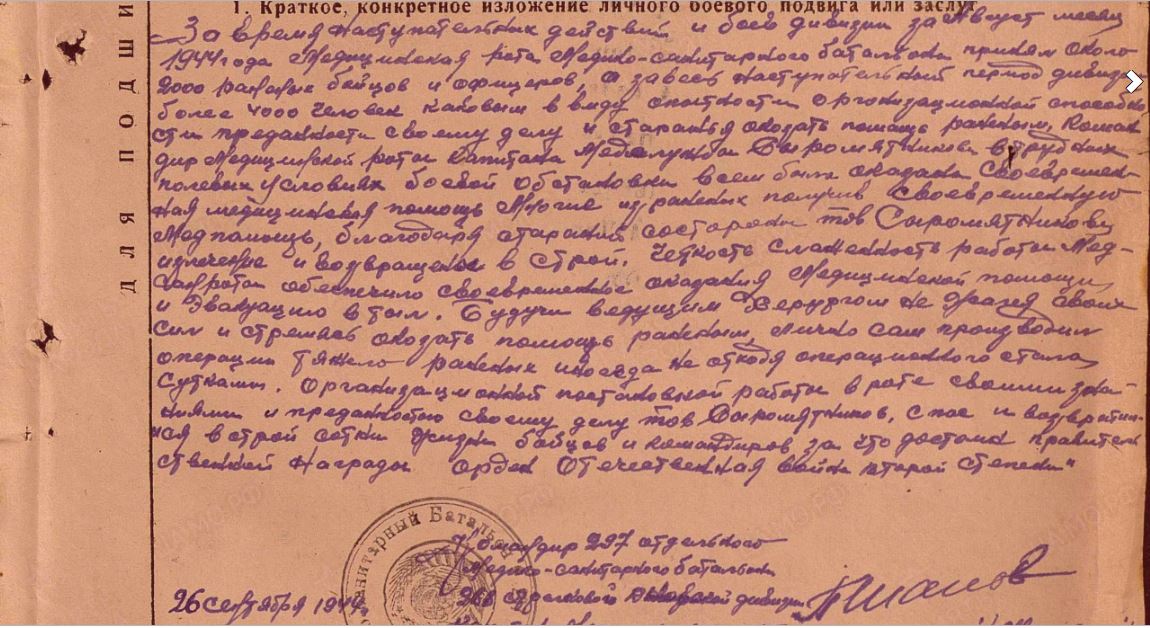 1. Краткое, конкретное изложение личного боевого подвига или заслуг
ДЛЯ ПОДШИ
За время наступательных действий и боев дивизии за Август месяц
1944 года Медицинская рота Медико-санитарного баталиона принял около
2000 раненых бойцов и офицеров, а завесь наступательный период дивизии
более 4000 человек каковым в виду опытности организационной способно
сти преданности своему делу и старанья оказать помощь раненым, коман
дир Медицинской роты Капитана Медслужбы Сыромятникова в трудных
полевых условиях боевой обстановки всем была оказана Своевремен-
ная медицинская помощь Многие из раненых получив Своевременную
Медпомощь, благодаря стараний состороны тов Сыромятникову
излечение и возвращены в строй. Четкость слаженность работы Мед-
санроты обеспечило своевременное оказания Медицинской помощи,
и Эвакуацию в тыл. Будучи ведущим Херургом не щадя своих
сил и стремясь оказать помощь раненым, лично сам производил
операции тяжело раненых иногда не отходя операционного стала
Сутками. Организационной постановкой работы в роте своими зна-
ниями и преданностью своему делу тов Сыромятников, спас и возвратил-
ся в строй сотни жизни бойцов и командиров за что достоин правитель
ственной Награды орден Отечественная война второй степени"
Санитарный Батальон
Командир 297 отдельного
Медико-санитарного батальона
стрелковой дивизии
26 сентября 1944г.